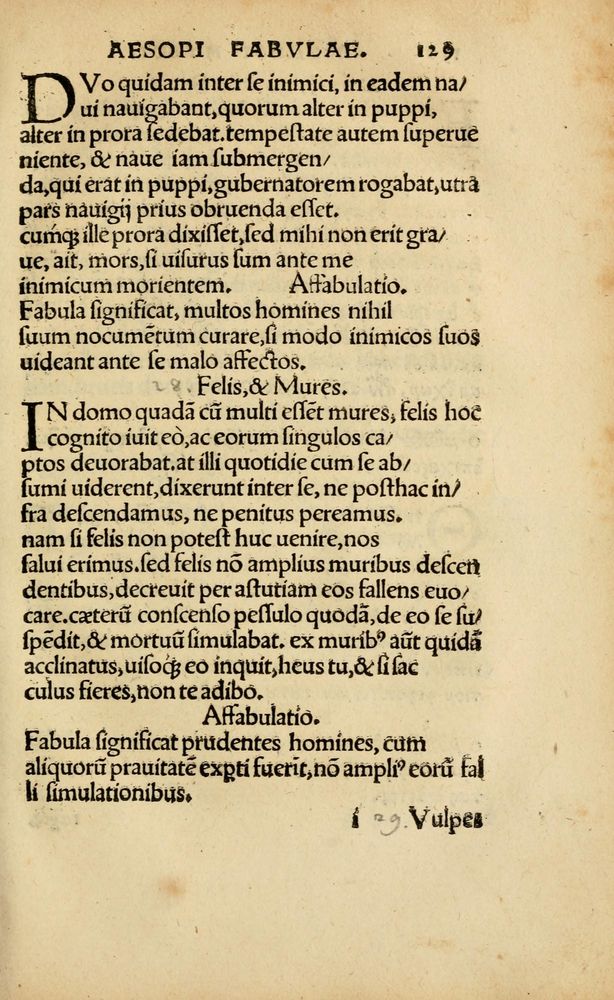 AESOPI FABVLAE. 129
DVo quidam inter ſe inimici, in eadem na/
ui nauigabant, quorum alter in puppi,
alter in prora ſedebat. tempeſtate autem ſuperue
niente, & naue iam ſubmergen/
da, qui erat in puppi, gubernatorem rogabat, utrā
pars nauigij prius obruenda eſſet.
cumq́; ille prora dixiſſet, ſed mihi non erit gra/
ue, ait, mors, ſi uiſurus ſum ante me
inimicum morientem. Affabulatio.
Fabula ſignificat, multos homines nihil
ſuum nocumētum curare, ſi modo inimicos ſuos
uideant ante ſe malo affectos.
28. Felis, & Mures.
IN domo quadā cū multi eſſēt mures, felis hoc
cognito iuit eò, ac eorum ſingulos ca/
ptos deuorabat. at illi quotidie cum ſe ab/
ſumi uiderent, dixerunt inter ſe, ne poſthac in/
fra deſcendamus, ne penitus pereamus.
nam ſi felis non poteſt huc uenire, nos
ſalui erimus. ſed felis nō amplius muribus deſcen
dentibus, decreuit per aſtutiam eos fallens euo/
care. cæterū conſcenſo peſſulo quodā, de eo ſe ſu/
ſpēdit, & mortuū ſimulabat. ex muribꝰ aūt quidā
acclinatus, uiſoq́; eo inquit, heus tu, & ſi ſac
culus fieres, non te adibo.
Affabulatio.
Fabula ſignificat prudentes homines, cum
aliquorū prauitatē exꝑti fuerīt, nō ampliꝰ eorū fal
li ſimulationibus.
i 29. Vulpes